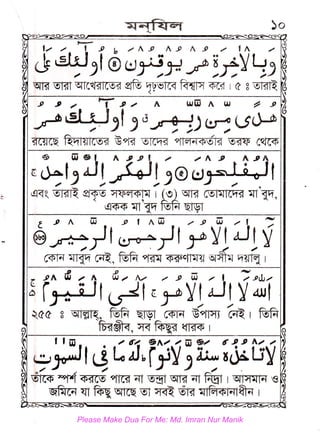 মনযিল ১০
وَبِالْاٰخِرَةِ هُمْ يُوْقِنُوْنَ ۞ اُولٰٓئِكَ عَلٰى
আর তারা আখেরাতের প্রতি দৃঢ়ভাবে বিশ্বাস করে। ৫ ঃ তারাই
هُدًى مِّنْ رَّبِّهِمْ وَاُولٰٓئِكَ هُمُ
রয়েছে হিদায়াতের উপর তাদের পালনকর্তার তরফ থেকে
الْمُفْلِحُوْنَ ۞ وَاِلٰهُكُمْ اِلٰهٌ وَّاحِدٌ ج
এবং তারাই প্রকৃত সফলকাম। (৩) আর তোমাদের মা'বুদ,
একক মা'বুদ তিনি ছাড়া
لَآ اِلٰهَ اِلَّا هُوَ الرَّحْمٰنُ الرَّحِيْمُ
কোন মাবুদ নেই, তিনি পরম করুণাময় অসীম দয়ালু।
اَللهُ لَآ اِلٰهَ اِلَّا هُوَ ج اَلْحَيُّ الْقَيُّوْمُ
২৫৫ ঃ আল্লাহ, তিনি ছাড়া কোন উপাস্য নেই। তিনি
চিরঞ্জীব, সব কিছুর ধারক।
لَا تَاْخُذُهٗ سِنَةٌ وَّلَا نَوْمٌ لَهٗ مَا فِى السَّمٰوٰتِ
তাঁকে স্পর্শ করতে পারে না তন্দ্রা আর না নিদ্রা। আসমান ও
জমিনে যা কিছু আছে তা সবই তাঁর মালিকানাধীন।
Please Make Dua For Me: Md. Imran Nur Manik